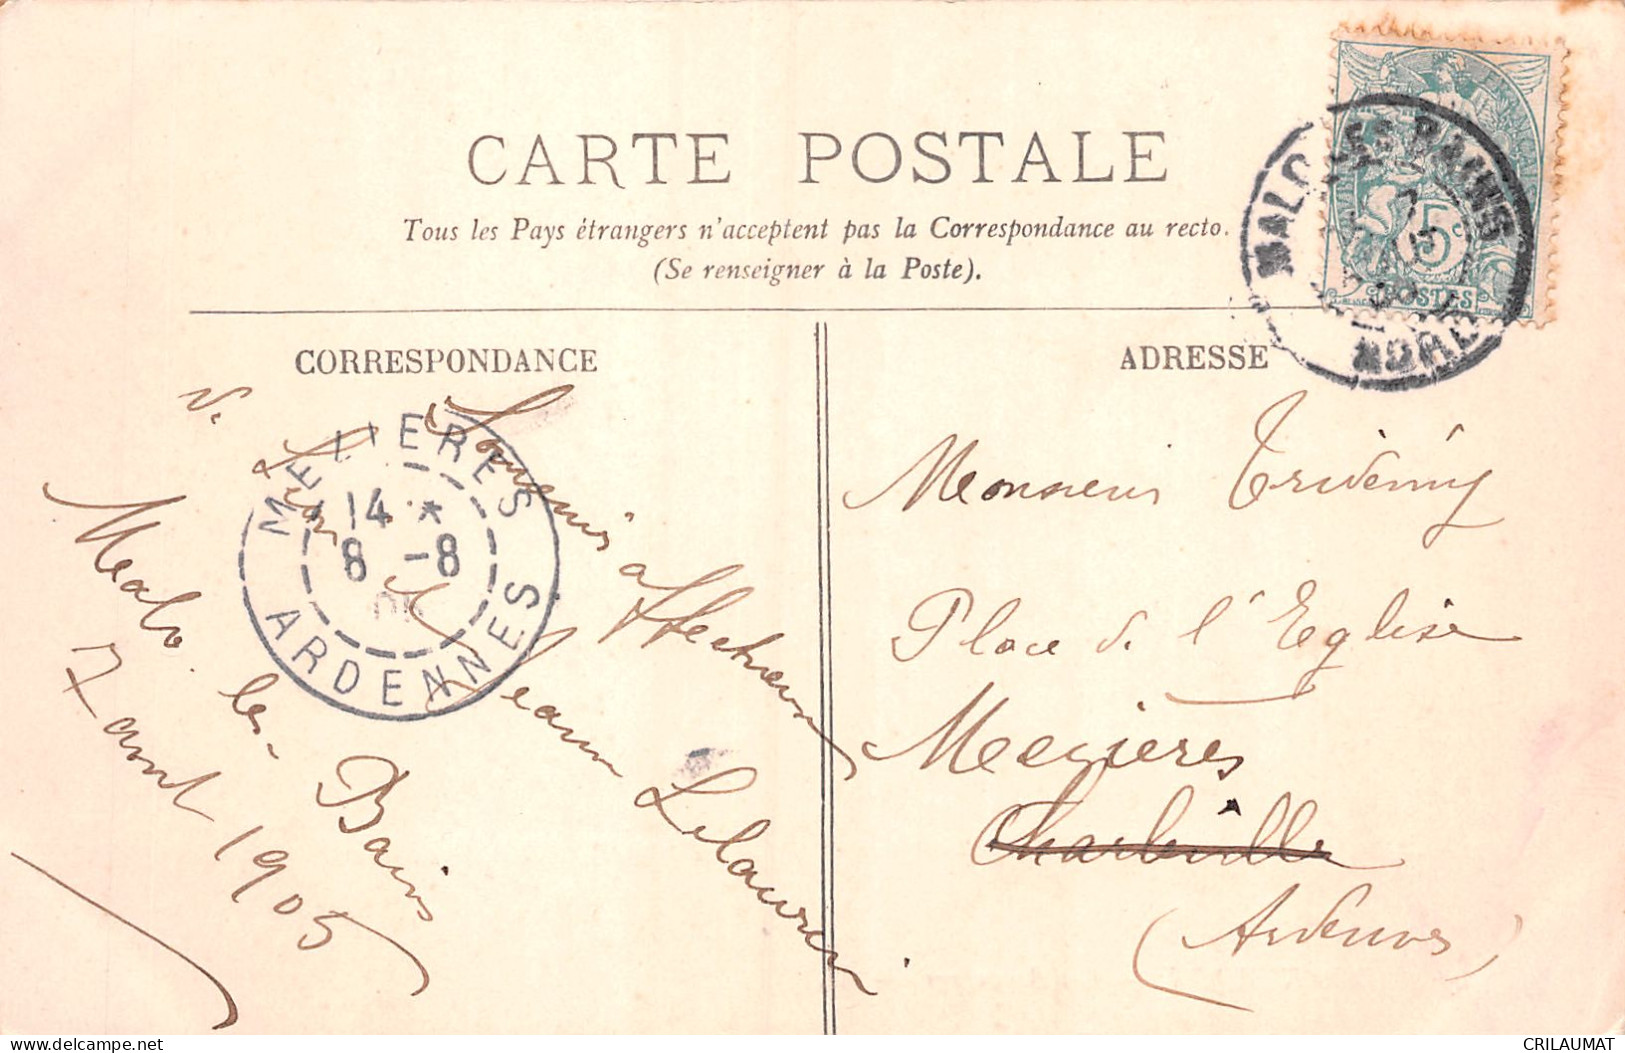 CARTE POSTALE
Tous les Pays étrangers n'acceptent pas la Correspondance au recto.
(Se renseigner à la Poste).
CORRESPONDANCE
ADRESSE
MALO LES BAINS
7
NORD
5c
POSTES
MEZIERES
14 *
8 -8
05
ARDENNES
Souvenirs affectueux
Jeanne
Malo les Bains
7 août 1905
Monsieur Tridémy
Place de l'Eglise
Mezières
Charleville
(Ardennes)
CRILAUMAT